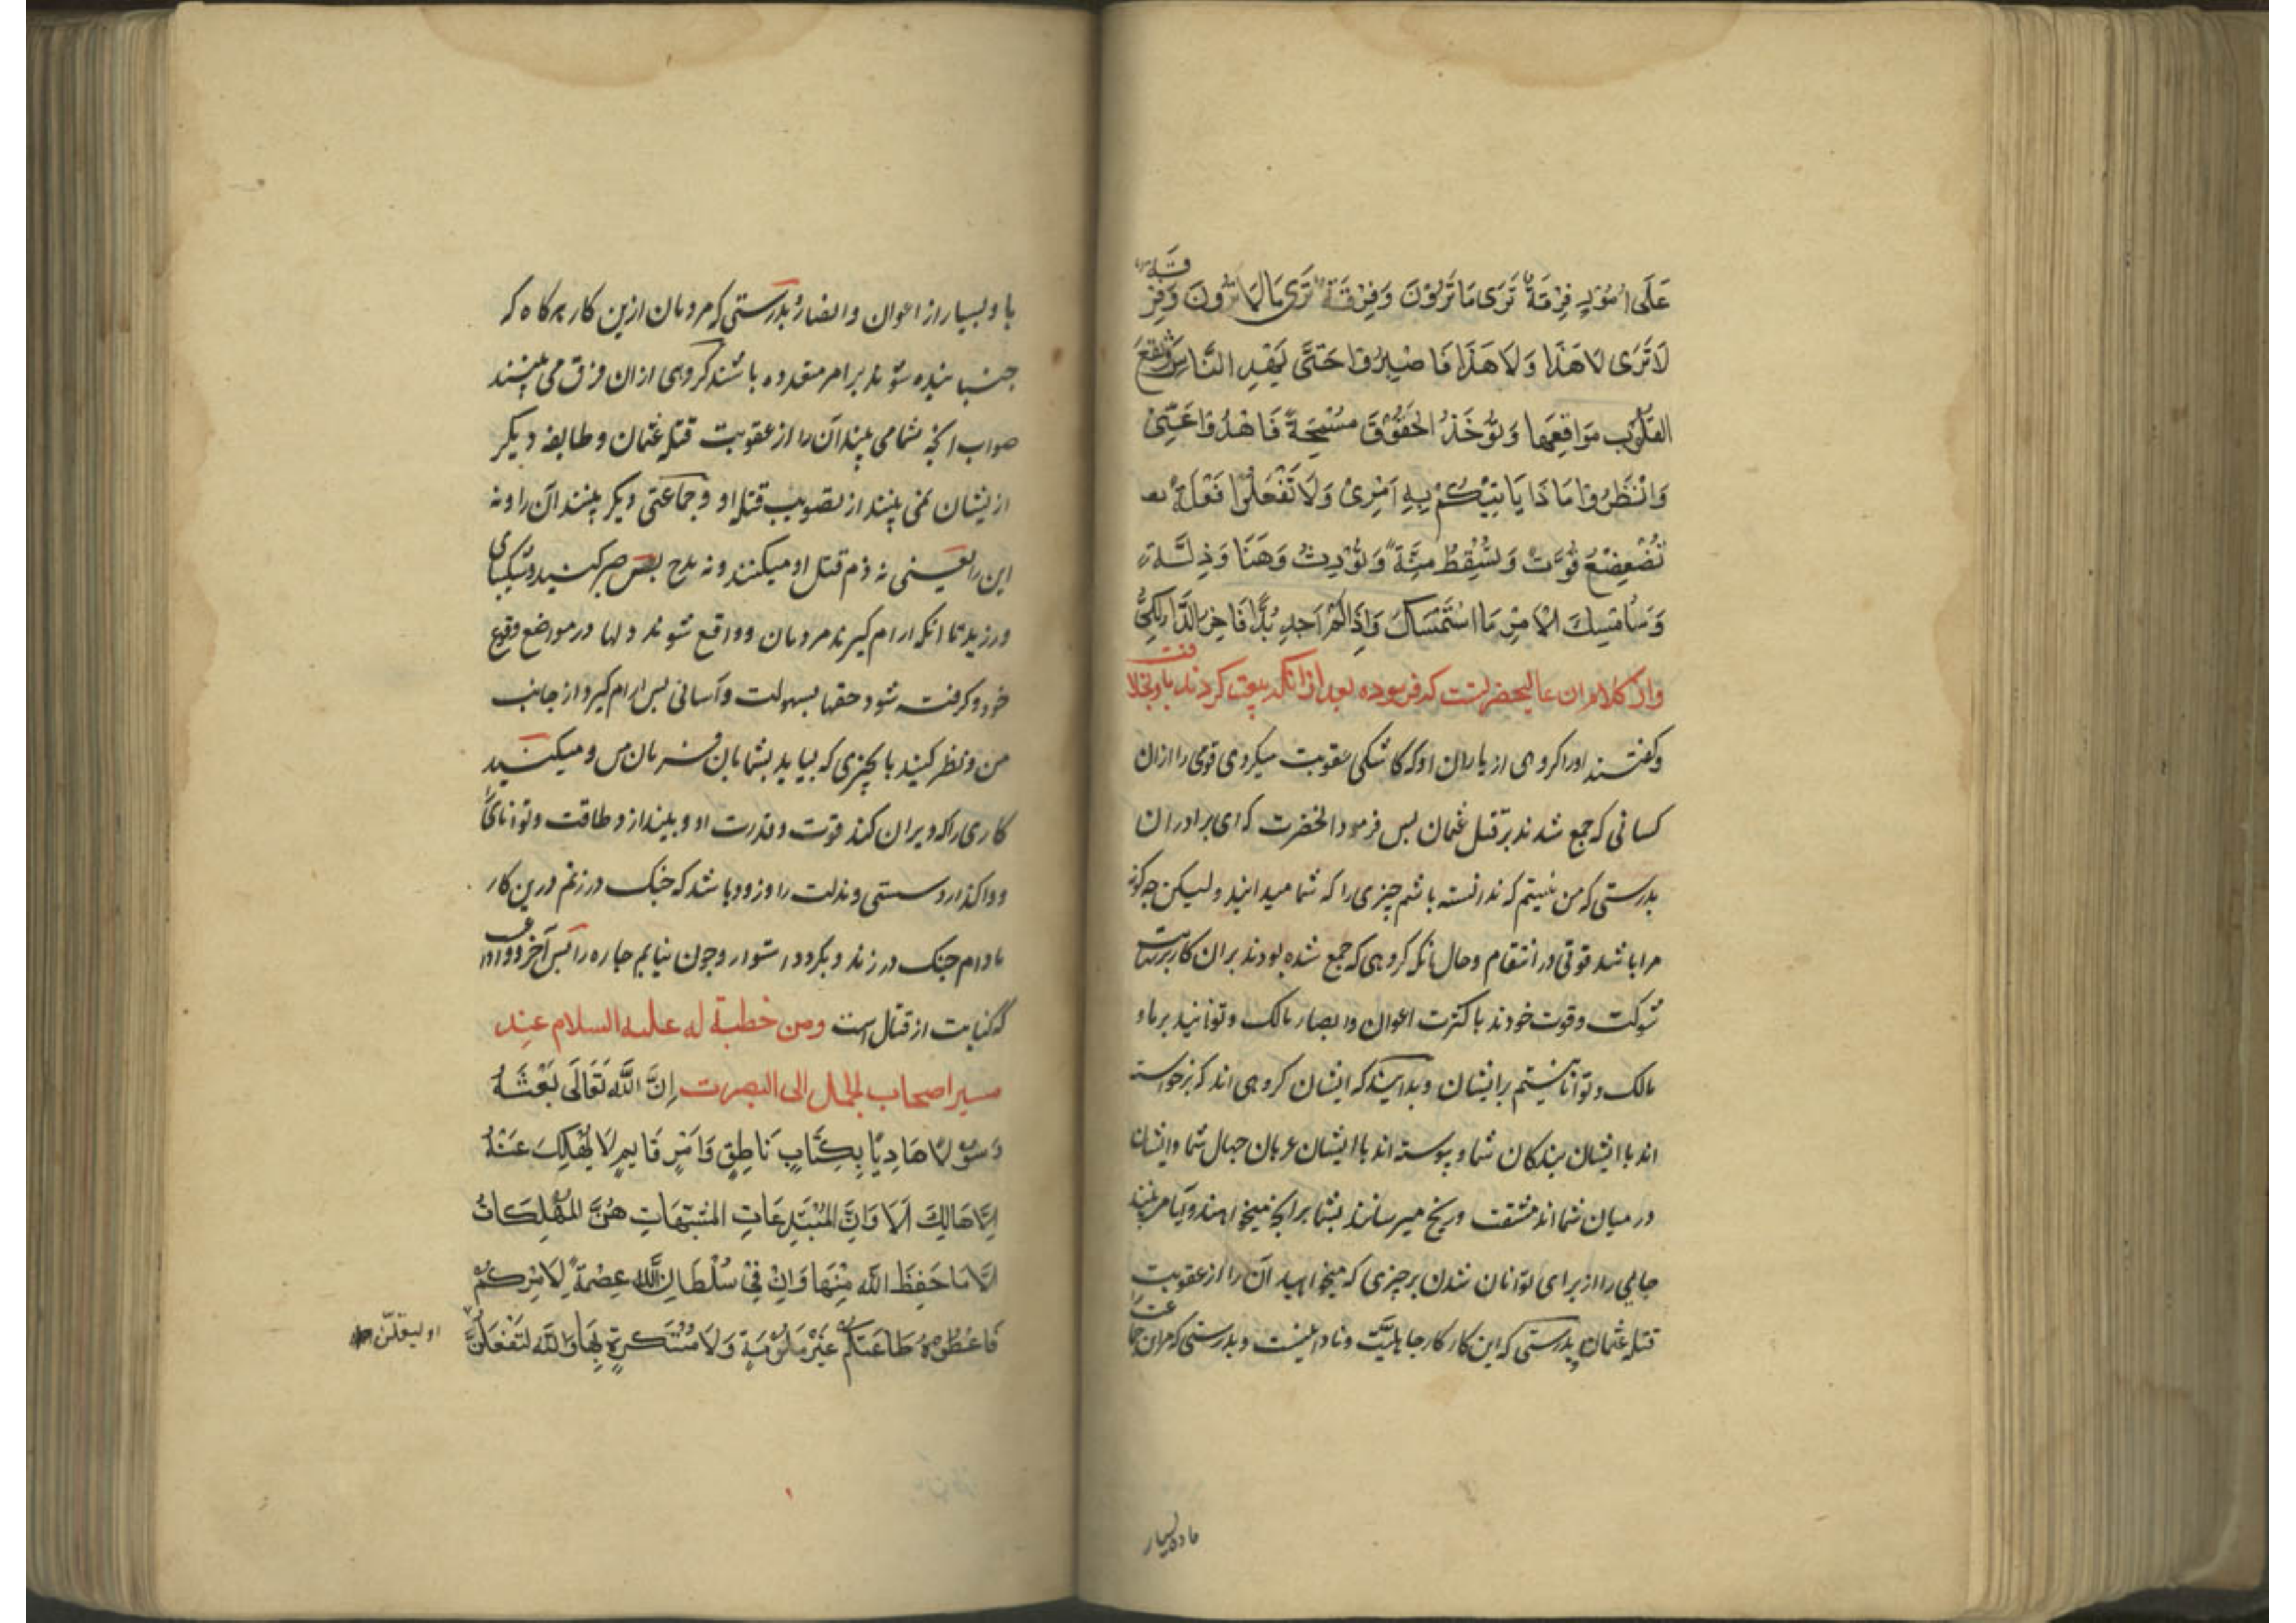 عَلَى اُمُوْرٍ فِرْقَةٌ تَرَى مَا تَرَوْنَ وَفِرْقَةٌ تَرَى مَا لَا تَرَوْنَ وَفِرْقَةٌ
لَا تَرَى لَا هَذَا وَلَا هَذَا فَاصْبِرُوا حَتَّى يَهْدَءَ النَّاسُ وَتَقَعَ
القُلُوبُ مَوَاقِعَهَا وَتُؤْخَذُ الحُقُوْقُ مُسْمِحَةً فَاهْدَؤُا عَنِّىْ
وَانْظُرُوا مَاذَا يَاتِيْكُمْ بِهِ اَمْرِىْ وَلَا تَفْعَلُوْا فَعْلَةً
تُضَعْضِعُ قُوَّةً وَتُسْقِطُ مُنَّةً وَتُوْرِثُ وَهَنًا وَذِلَّةً
وَسَاُمْسِكُ الْاَمْرَ مَا اسْتَمْسَكَ وَاِذَا لَمْ اَجِدْ بُدًّا فَاخِرُ الدَّاءِ الكَىُّ
واز كلام ان عاليحضرتست كه فرموده بعد از انكه بيعت كردند باو بخلافت
وكفتند اورا كروهى از ياران او كه كاشكى عقوبت ميكردى قومى را ازان
كسانى كه جمع شدند بر قتل عثمان پس فرمود انحضرت كه اى برادران
بدرستى كه من نيستم كه ندانسته باشم چيزى را كه شما ميدانيد وليكن چه كونه
مرا باشد قوتى در انتقام وحال انكه كروهى كه جمع شده بودند بران كار برنهايت
شوكت وقوت خودند با كثرت اعوان وانصار مالك وتوانيد بر ما و
مالك وتوانا نيستم بر ايشان وبدانيد كه ايشان كروهى اند كه برخواسته
اند با ايشان بندكان شما و پيوسته اند با ايشان عربان جهال شما وايشان
در ميان شما اند مشقت ورنج ميرسانند بشما بر انچه ميخواهند وايا مى بينند
جايى را از براى توانان شدن بر چيزى كه ميخواهيد آن را از عقوبت
قتله عثمان بدرستى كه اين كار كار جاهليّت ونادانيست وبدرستى كه مران جماعت را
ماده بسيار
با و بسيار از اعوان وانصار بدرستى كه مردمان ازين كار هركاه كه
جنبانيده شوند بر امر متعدده باشند كروهى ازان فرق مى بينند
صواب انچه شما مى بينيد آن را از عقوبت قتله عثمان وطايفه ديكر
ازيشان نمى بينند از تصويب قتله او وجماعتى ديكر بينند آن را ونه
اين را يعنى نه ذم قتل او ميكنند ونه مدح پس صبر كنيد وشكيبايى
ورزيد تا انكه ارام كيرند مردمان وواقع شوند دلها در مواضع وقوع
خود وكرفته شود حقها بسهولت وآسانى پس ارام كيرد از جانب
من ونظر كنيد با چيزى كه بيايد بشما بان فرمان من وميكنيد
كارى را كه ويران كند قوت وقدرت او وبيندازد طاقت وتوانايى
وواكذارد سستى ومذلت را وزود باشد كه چنك در زنم درين كار
مادام چنك در زند وبكردد استوار وچون نيابم چاره را پس آخر دوا داغ
كه كنايت از قتال است ومن خطبة له عليه السلام عند
مسير اصحاب الجمل الى البصرت اِنَّ اللَّهَ تَعَالَى بَعَثَ
رَسُوْلًا هَادِيًا بِكِتَابٍ نَاطِقٍ وَاَمْرٍ قَايِمٍ لَا يَهْلِكُ عَنْهُ
اِلَّا هَالِكٌ اَلَا وَاِنَّ المُبْتَدَعَاتِ المُشَبَّهَاتِ هُنَّ المُهْلِكَاتُ
اِلَّا مَا حَفِظَ اللَّهُ مِنْهَا وَاِنَّ فِىْ سُلْطَانِ اللَّهِ عِصْمَةً لِاَمْرِكُمْ
فَاعْطُوْهُ طَاعَتَكُمْ غَيْرَ مَلُوْمَةٍ وَلَا مُسْتَكْرَهٍ بِهَا وَاللَّهِ لَتَفْعَلُنَّ
او لينقلنّ